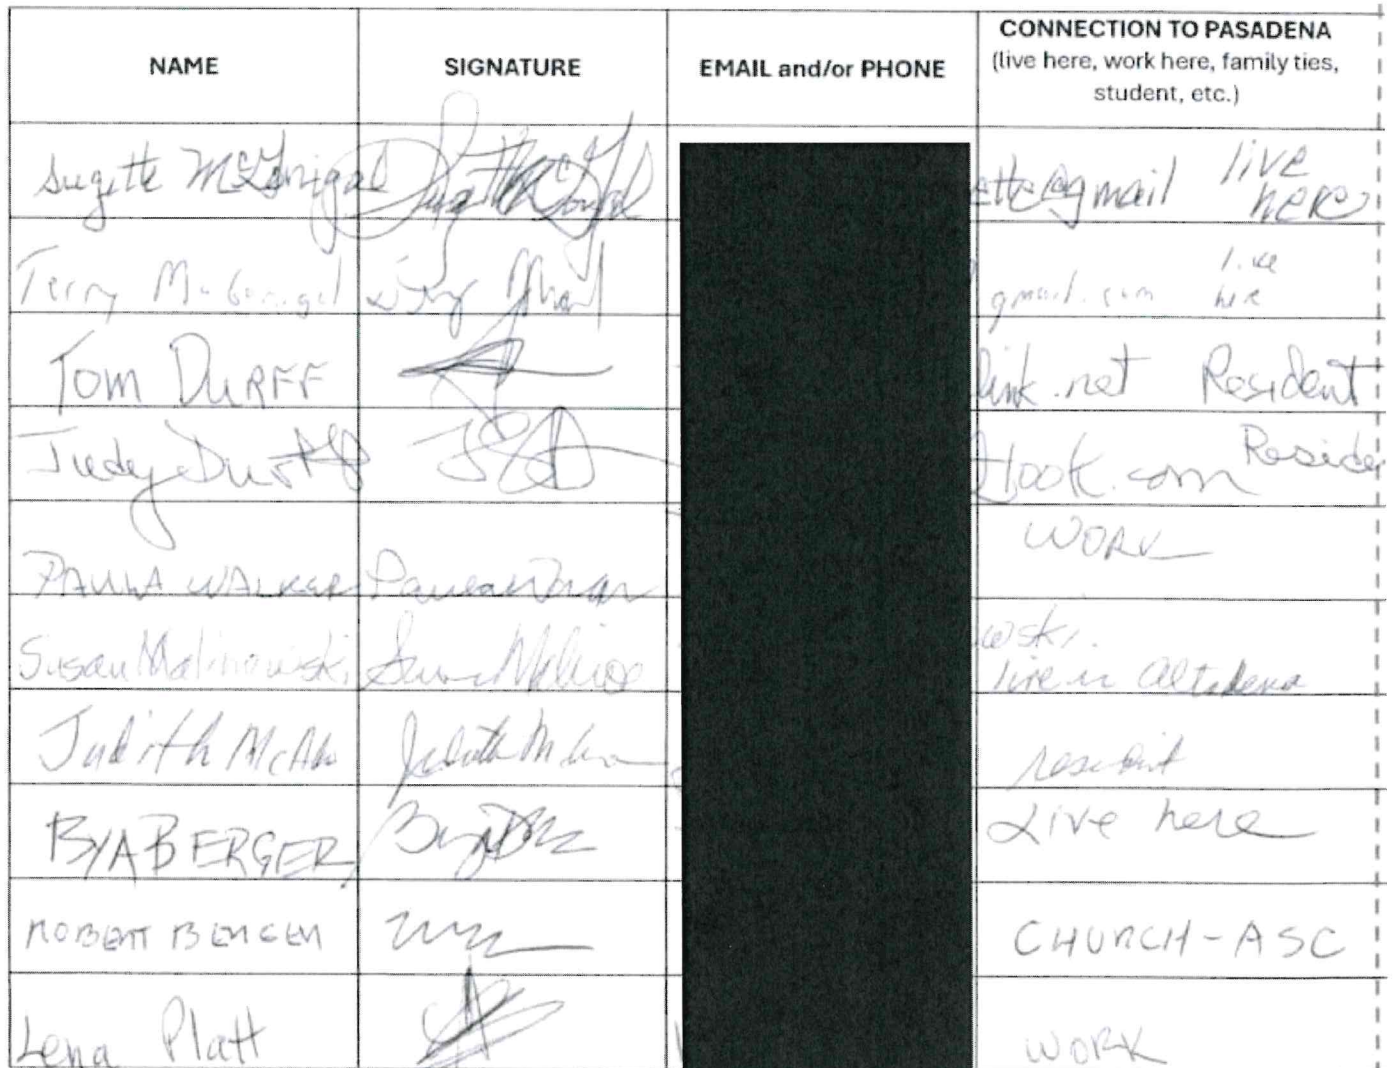 NAME SIGNATURE EMAIL and/or PHONE CONNECTION TO PASADENA
(live here, work here, family ties,
student, etc.)
Sugette McGonigal ette@gmail live
here
Terry McGonigal gmail.com live
here
Tom DURFF link.net Resident
Judy Durff tlook.com Reside
PAULA WALKER WORK
Susan Malinowski wski.
live in Altadena
Judith resident
BYA BERGER Live here
ROBERT BERGER CHURCH - ASC
Lena Platt WORK